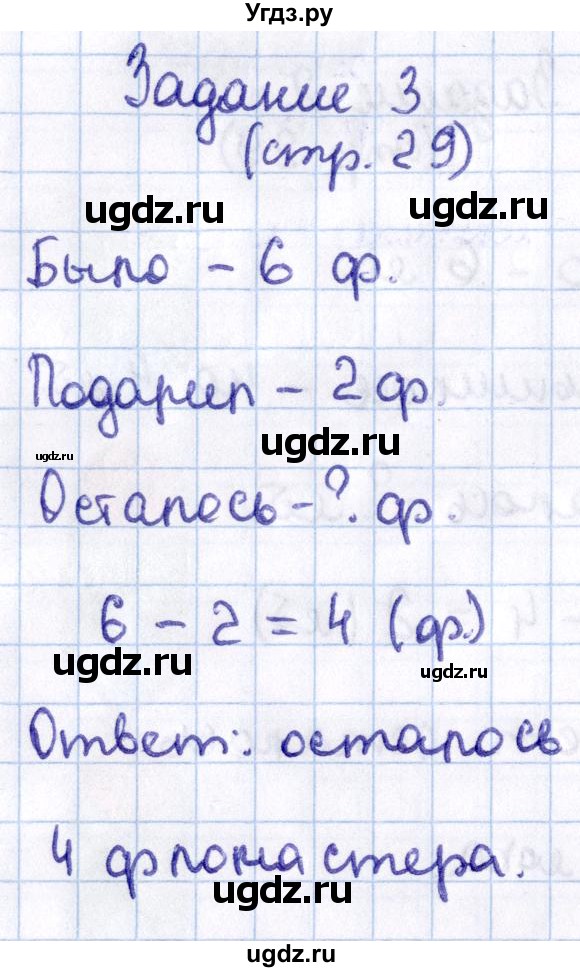 Угдз.ру
Задание 3
(стр. 29)
ugdz.ru
ugdz.ru
Было – 6 ф.
Подарил – 2 ф.
ugdz.ru
ugdz.ru
Осталось – ? ф.
6 – 2 = 4 (ф.)
ugdz.ru
ugdz.ru
Ответ: осталось
4 фломастера.
ugdz.ru
ugdz.ru